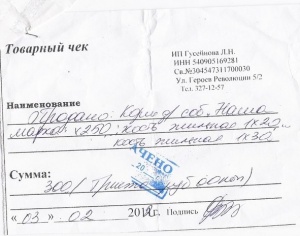 Товарный чек
ИП Гусейнова Л.Н.
ИНН 540905169281
Св.№304547311700030
Ул. Героев Революции 5/2
Тел. 327-12-57
Наименование
Продано: Корм д/ соб. Наша
марка х250, кость жильная 1х20
кость жильная 1х30
Сумма:
300/ Триста руб 00коп)
« 03 » 02 Подпись